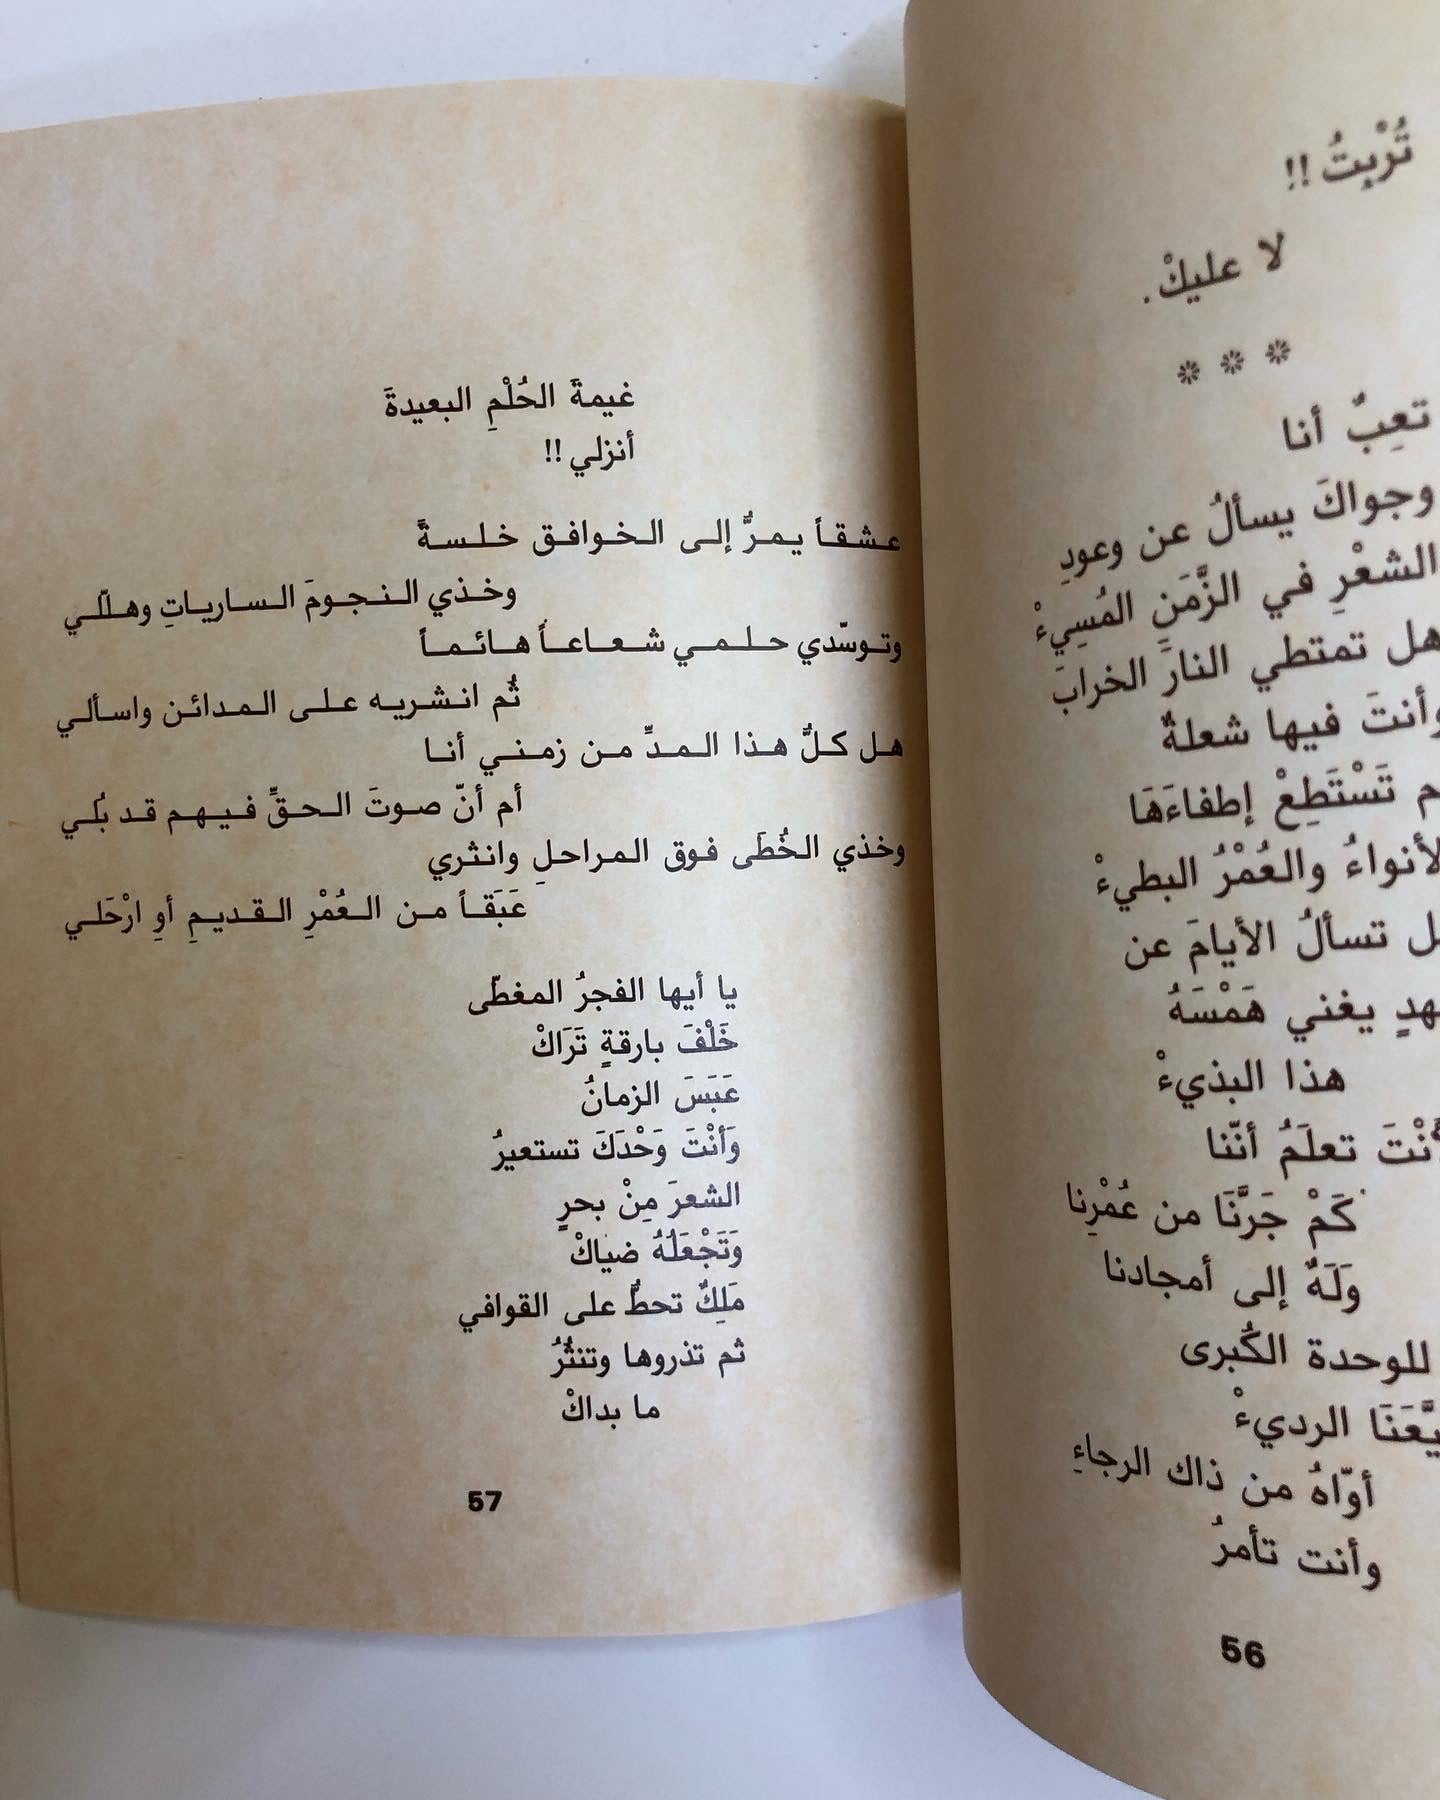 تُرْبِتُ !!
لا عليكْ.
* * *
تعِبٌ أنا
وجواكَ يسألُ عن وعودِ
الشعْرِ في الزَّمَنِ المُسِيءْ
هل تمتطي النارَ الخرابَ
وأنتَ فيها شعلةٌ
تَسْتَطِعْ إطفاءَهَا
الأنواءُ والعُمْرُ البطيءْ
تسألُ الأيامَ عن
يغني هَمْسَهُ
هذا البذيءْ
تعلَمُ أنّنا
كَمْ جَرَّنَا من عُمْرِنا
وَلَهٌ إلى أمجادنا
للوحدة الكُبرى
الرديءْ
أوّاهُ من ذاك الرجاءِ
وأنت تأمرُ
56
غيمةَ الحُلْمِ البعيدةَ
أنزلي !!
عشقاً يمرُّ إلى الخوافق خلسةً
وخذي النجومَ السارياتِ وهللّي
وتوسّدي حلمي شعاعاً هائماً
ثُم انشريه على المدائن واسألي
هل كلُّ هذا المدِّ من زمني أنا
أم أنّ صوتَ الحقِّ فيهم قد بُلي
وخذي الخُطَى فوق المراحلِ وانثري
عَبَقاً من العُمْرِ القديمِ أوِ ارْحَلي
يا أيها الفجرُ المغطّى
خَلْفَ بارقةٍ تَرَاكْ
عَبَسَ الزمانُ
وَأنْتَ وَحْدَكَ تستعيرُ
الشعرَ مِنْ بحرٍ
وَتَجْعَلُهُ ضياكْ
مَلِكٌ تحطُّ على القوافي
ثم تذروها وتنثُرُ
ما بداكْ
57